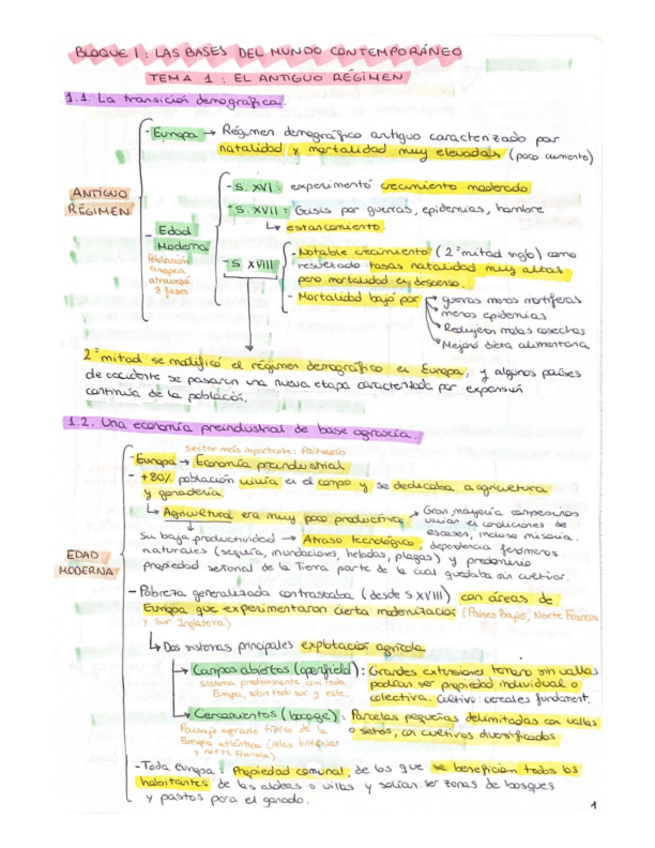 BLOQUE I : LAS BASES DEL MUNDO CONTEMPORÁNEO
TEMA 1 : EL ANTIGUO RÉGIMEN
1.1. La transición demográfica.
ANTIGUO RÉGIMEN
- Europa → Régimen demográfico antiguo caracterizado por
natalidad y mortalidad muy elevadas (poco aumento)
- Edad Moderna
Población europea atravesó 3 fases
- S. XVI : experimentó crecimiento moderado
- S. XVII : Crisis por guerras, epidemias, hambre
↳ estancamiento.
- S. XVIII
- Notable crecimiento (2ª mitad siglo) como
resultado tasas natalidad muy altas
pero mortalidad en descenso.
- Mortalidad bajó por
→ guerras menos mortíferas
→ menos epidemias
→ Redujeron malas cosechas
→ Mejoró dieta alimentaria
2ª mitad se modificó el régimen demográfico en Europa, y algunos países
de occidente se pasaron una nueva etapa caracterizada por expansión
continua de la población.
1.2. Una economía preindustrial de base agraria.
EDAD MODERNA
Sector más importante: PRIMARIO
- Europa → Economía preindustrial
- +80% población vivía en el campo y se dedicaba a agricultura
y ganadería.
↳ Agricultura era muy poco productiva
→ Gran mayoría campesinos
vivían en condiciones de
escasez, incluso miseria.
Su baja productividad → Atraso tecnológico, dependencia fenómenos
naturales (sequía, inundaciones, heladas, plagas) y predominio
propiedad señorial de la Tierra parte de la cual quedaba sin cultivar.
- Pobreza generalizada contrastaba (desde S.XVIII) con áreas de
Europa que experimentaron cierta modernización (Países Bajos, Norte Francia
y sur Inglaterra)
↳ Dos sistemas principales explotación agrícola
→ Campos abiertos (openfield) : Grandes extensiones terreno sin vallas
podían ser propiedad individual o
colectiva. Cultivo: cereales fundament.
Sistema predominante casi toda
Europa, sobre todo sur y este.
→ Cercamientos (bocage) : Parcelas pequeñas delimitadas con vallas
o setos, con cultivos diversificados
Paisaje agrario típico de la
Europa atlántica (islas británicas
y norte Francia)
- Toda Europa : Propiedad comunal, de las que se benefician todos los
habitantes de las aldeas o villas y solían ser zonas de bosques
y pastos para el ganado.
1